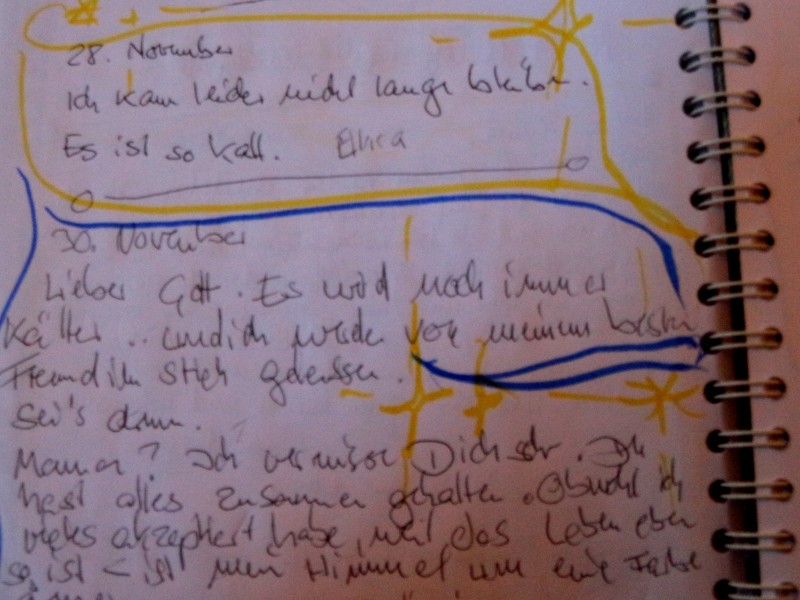 28. November
Ich kann leider nicht lange bleiben.
Es ist so kalt.
30. November
Lieber Gott. Es wird noch immer
Kälter .. und ich werde von meinem besten
Freund im Stich gelassen.
Sei's drum.
Mama? Ich vermisse Dich sehr. Du
hast alles zusammen gehalten. Obwohl ich
vieles akzeptiert habe, weil das Leben eben
so ist - ist mein Himmel um eine Farbe